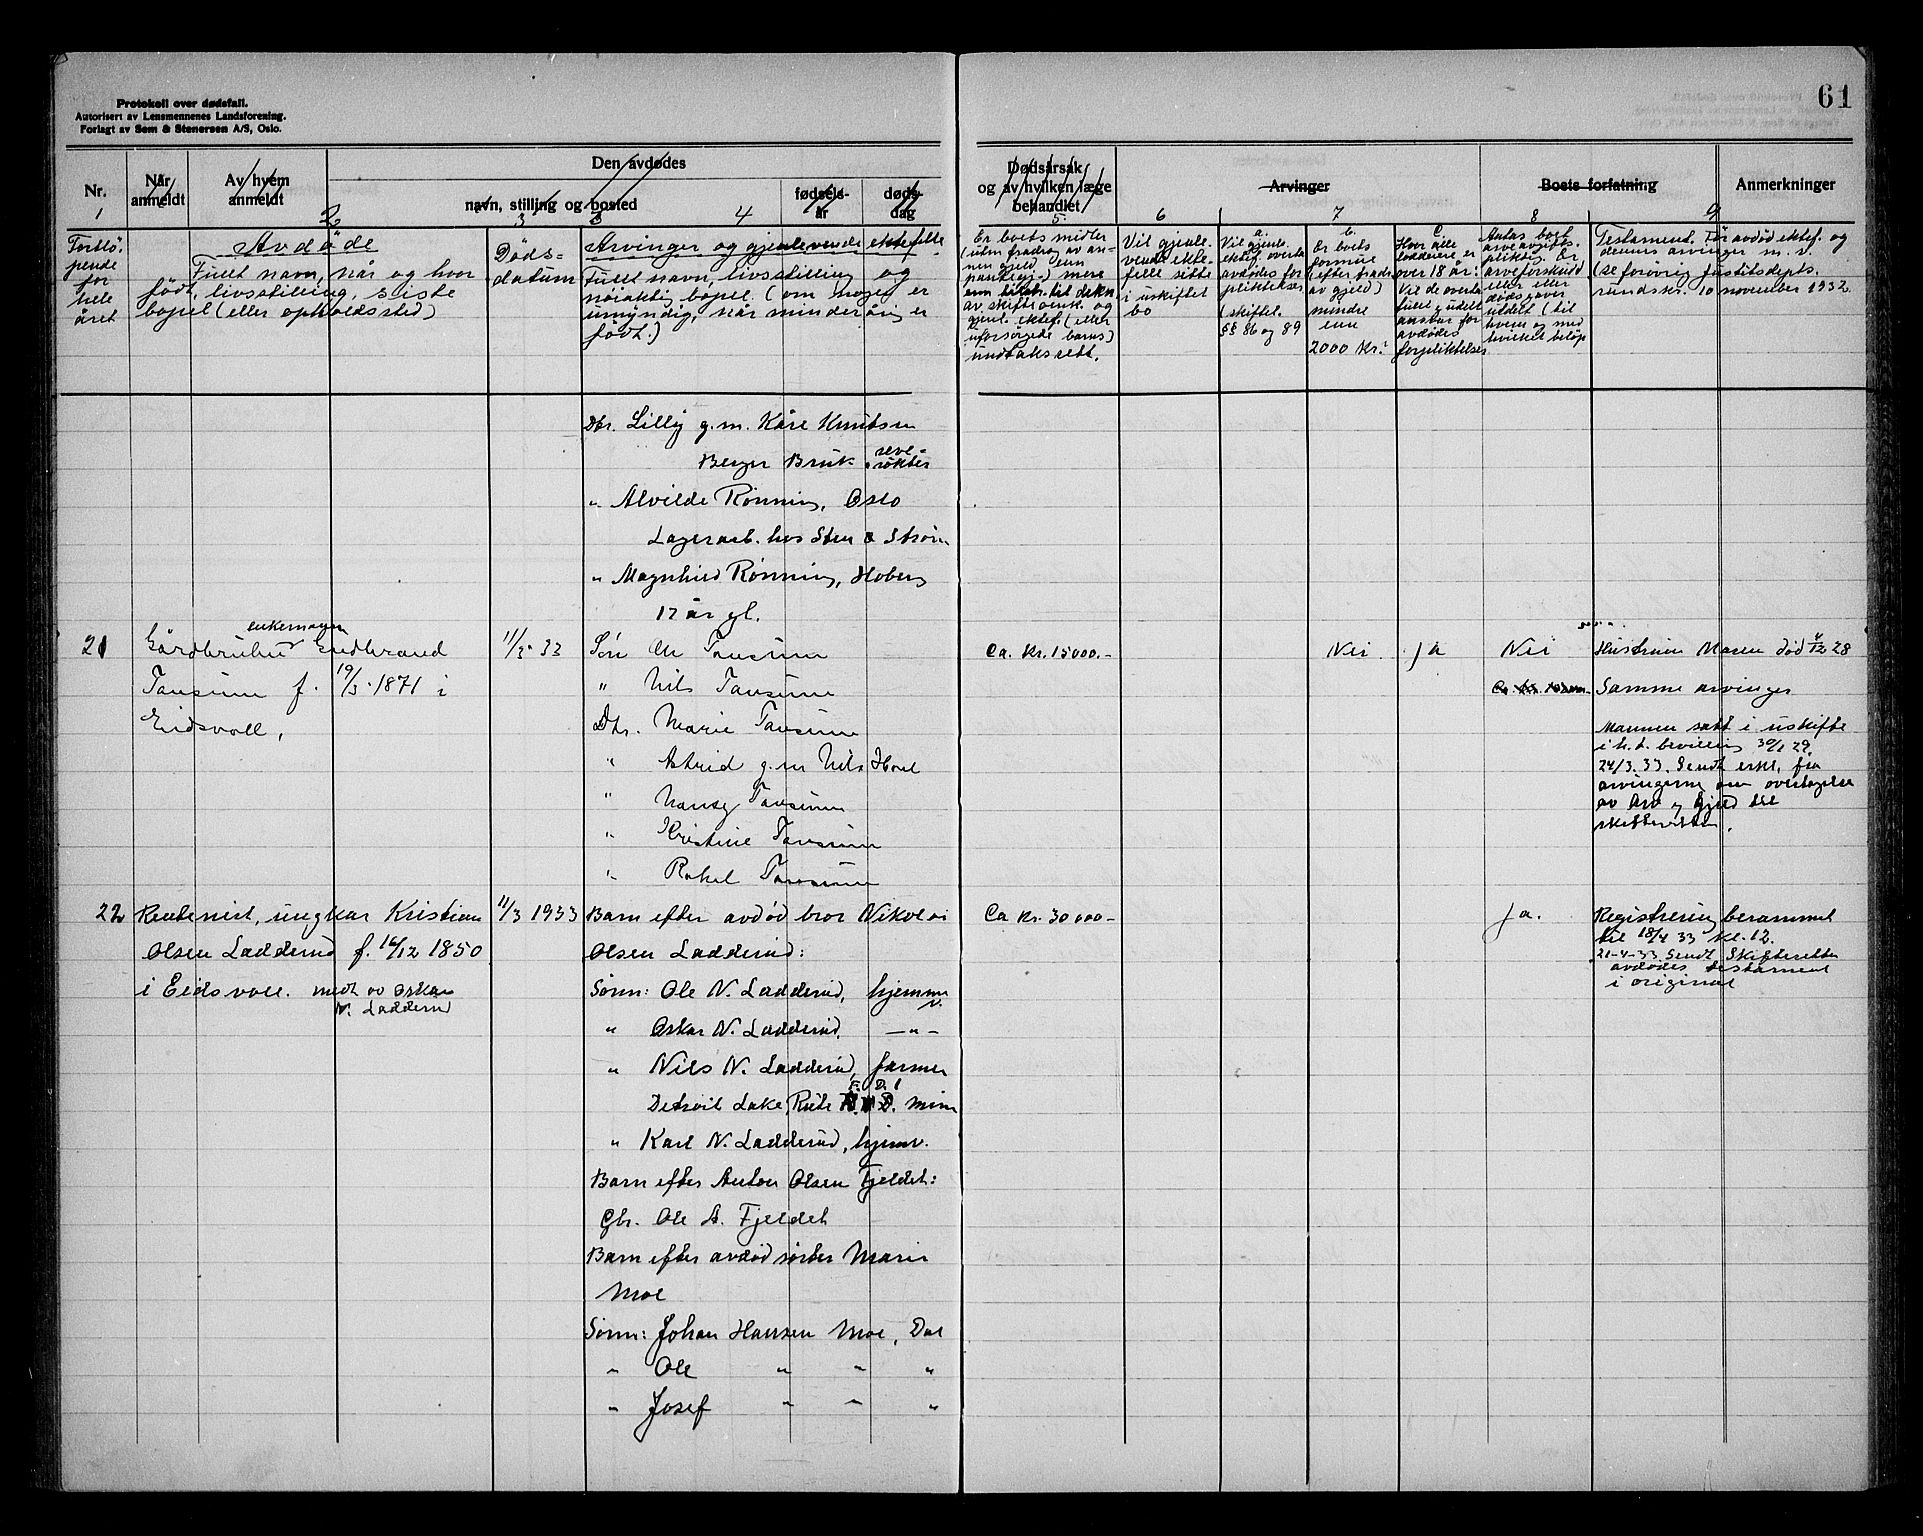 Protokoll over dødsfall.
Autorisert av Lensmennenes Landsforening.
Forlagt av Sem & Stenersen A/S, Oslo.
61
Nr.
Når anmeldt
Av hvem anmeldt
Den avdødes
navn, stilling og bosted
fødsels-
år
døds-
dag
Dødsårsak
og av hvilken læge
behandlet
Arvinger
Boets forfatning
Anmerkninger
1 2 3 4 5. 6 7 8 9
Fortlö-
pende
for
hele
året
Avdøde
Fullt navn, når og hvor
født, livsstilling, siste
bopel (eller opholdssted)
Døds-
datum
Arvinger og gjenlevende ektefelle
Fullt navn, livsstilling og
nøiaktig bopel. (om nogen er
umyndig, når minderårig er
født.)
Er boets midler
(uten fradrag av an-
nen gjeld enn
pantegjeld) mere
enn tilstr. til dekn.
av skifteomk. og
gjenl. ektef. (eller
uforsørgede barns)
undtaksrett.
Vil gjenle-
vende ekte-
felle sitte
i uskiftet
bo
a.
Vil gjenle.
ektef. overta
avdødes for-
pliktelser
(skiftel.
§§ 86 og 89
b.
Er boets
formue
(efter fradr.
av gjeld)
mindre
enn
2000 kr.?
c.
Hvor alle
loddeiere er
over 18 år:
Vil de overta
fullt og udelt
ansvar for
avdødes
forpliktelser
Antas boet
arveavgifts-
pliktig. Er
arveforskudd
eller
dødsgaver
utdelt (til
hvem og med
hvilket beløp
Testament. Før avdød ektef. og
dennes arvinger m. v.
(se forøvrig Justitsdepts.
rundskr. 10 november 1932
Dtr. Lilly g.m. Kåre Knutsen
Berger Bruk reve-
røkter
" Alvilde Rønning, Oslo
Lagerarb. hos Sten & Strøm
" Magnhild Rønning, Hoberg
17 år gl.
21 Gårdbruker enkemann Gudbrand 11/3-33 Søn Ole Tansum Ca. kr. 15000.- Nei Ja Nei Hustruen Maren død 4/12 28
Tansum f. 19/3-1871 i " Nils Tansum Samme arvinger
Eidsvoll, Dtr. Marie Tansum Mannen satt i uskifte
i h.t. bevilling 30/1 29.
" Astrid g.m. Nils Hovl 24/3.33. Sendt erkl. fra
arvingerne om overtagelse
" Nansy Tansum av Arv og gjeld til
skifteretten.
" Kristine Tansum
" Rakel Tansum
22 Rentenist, ungkar Kristian 11/3 1933 Barn efter avdød bror Nikolai Ca kr. 30 000- Ja. Registrering berammet
til 18/4 33 kl. 12.
Olsen Ladderud f. 16/12 1850 Olsen Ladderud: 21-4-33 Sendt Skifteretten
avdødes testament
i Eidsvoll. medt av Oskar Sønn: Ole N. Ladderud, hjemme i original
N. Ladderud v.
" Oskar N. Ladderud. —"—
" Nils N. Ladderud, farmer
Detroit Lake, Rute F. D. 1 Minn
" Karl N. Ladderud, hjemv.
Barn efter Anton Olsen Fjeldet:
Gbr. Ole A. Fjeldet
Barn efter avdød søster Marie
Moe
Sønn: Johan Hansen Moe, Dal
" Ole " " "
" Josef " " "